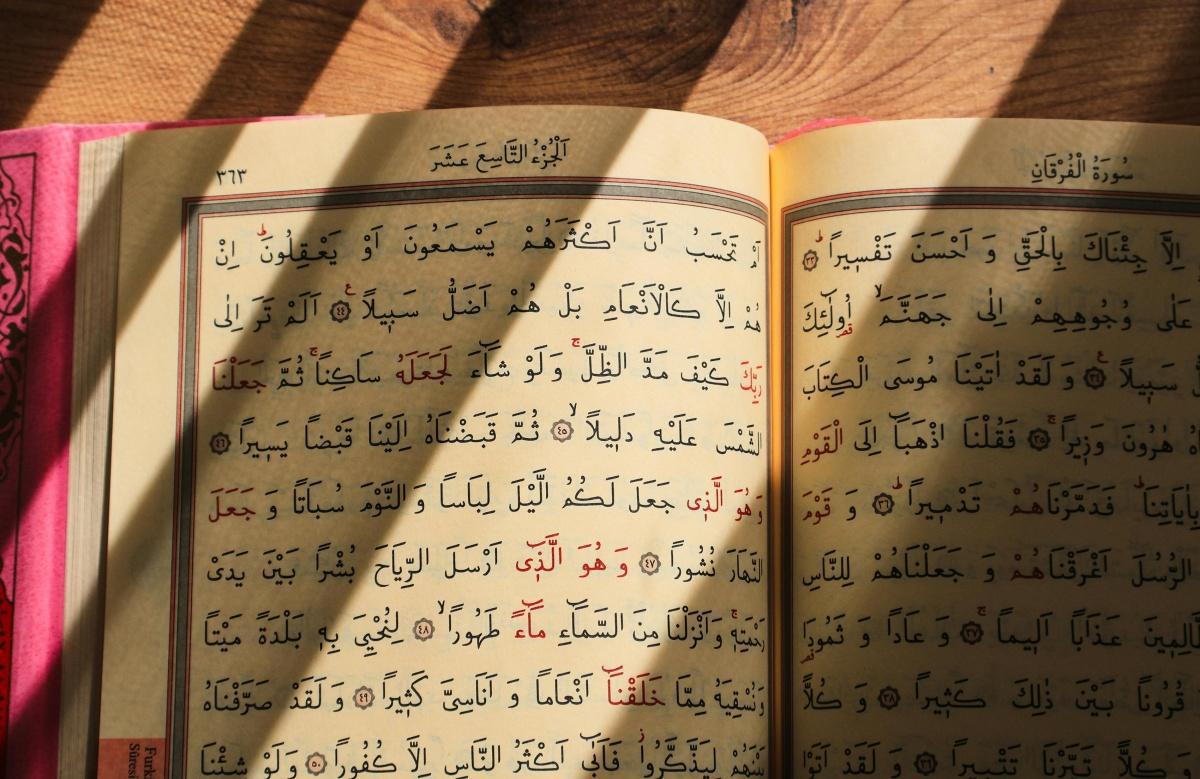 سُورَةُ الْفُرْقَانِ
اِلَّا جِئْنَاكَ بِالْحَقِّ وَ اَحْسَنَ تَفْسٖيراًۜ ﴿٣٣﴾
عَلٰى وُجُوهِهِمْ اِلٰى جَهَنَّمَۙ اُولٰٓئِكَ
سَبٖيلاً ﴿٣٤﴾ وَ لَقَدْ اٰتَيْنَا مُوسَى الْكِتَابَ
هٰرُونَ وَزٖيراًۚ ﴿٣٥﴾ فَقُلْنَا اذْهَبَٓا اِلَى الْقَوْمِ
بِاٰيَاتِنَاۜ فَدَمَّرْنَاهُمْ تَدْمٖيراًۜ ﴿٣٦﴾ وَ قَوْمَ
الرُّسُلَ اَغْرَقْنَاهُمْ وَ جَعَلْنَاهُمْ لِلنَّاسِ
عَذَاباً اَلٖيماًۚ ﴿٣٧﴾ وَ عَاداً وَ ثَمُودَا
قُرُوناً بَيْنَ ذٰلِكَ كَثٖيراً ﴿٣٨﴾ وَ كُلًّا
وَ كُلًّا تَبَّرْنَا تَتْبٖيراً ﴿٣٩﴾ وَ لَقَدْ اَتَوْا
اَلْجُزْءُ التَّاسِعَ عَشَرَ
٣٦٣
اَمْ تَحْسَبُ اَنَّ اَكْثَرَهُمْ يَسْمَعُونَ اَوْ يَعْقِلُونَۜ اِنْ
هُمْ اِلَّا كَالْاَنْعَامِ بَلْ هُمْ اَضَلُّ سَبٖيلاً ﴿٤٤﴾ اَلَمْ تَرَ اِلٰى
رَبِّكَ كَيْفَ مَدَّ الظِّلَّۚ وَ لَوْ شَٓاءَ لَجَعَلَهُ سَاكِناًۚ ثُمَّ جَعَلْنَا
الشَّمْسَ عَلَيْهِ دَلٖيلاًۙ ﴿٤٥﴾ ثُمَّ قَبَضْنَاهُ اِلَيْنَا قَبْضاً يَسٖيراً ﴿٤٦﴾
وَ هُوَ الَّذٖى جَعَلَ لَكُمُ الَّيْلَ لِبَاساً وَ النَّوْمَ سُبَاتاً وَ جَعَلَ
النَّهَارَ نُشُوراً ﴿٤٧﴾ وَ هُوَ الَّذٖٓى اَرْسَلَ الرِّيَاحَ بُشْراً بَيْنَ يَدَىْ
رَحْمَتِهٖۚ وَ اَنْزَلْنَا مِنَ السَّمَٓاءِ مَٓاءً طَهُوراًۙ ﴿٤٨﴾ لِنُحْيِىَ بِهٖ بَلْدَةً مَيْتاً
وَ نُسْقِيَهُ مِمَّا خَلَقْنَٓا اَنْعَاماً وَ اَنَاسِىَّ كَثٖيراً ﴿٤٩﴾ وَ لَقَدْ صَرَّفْنَاهُ
بَيْنَهُمْ لِيَذَّكَّرُواۘ فَاَبٰٓى اَكْثَرُ النَّاسِ اِلَّا كُفُوراً ﴿٥٠﴾ وَ لَوْ شِئْنَا